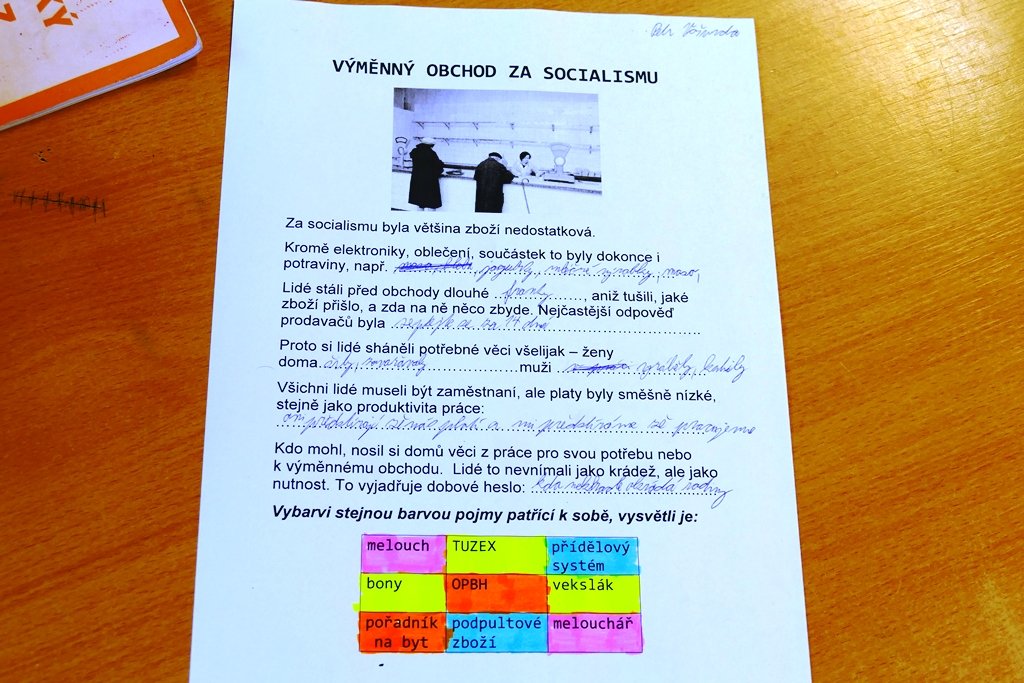 KÝ
Z
Petr
VÝMĚNNÝ OBCHOD ZA SOCIALISMU
Za socialismu byla většina zboží nedostatková.
Kromě elektroniky, oblečení, součástek to byly dokonce i
potraviny, např. jogurty, mléčné výrobky, maso,
Lidé stáli před obchody dlouhé fronty, aniž tušili, jaké
zboží přišlo, a zda na ně něco zbyde. Nejčastější odpověď
prodavačů byla za 14 dní
Proto si lidé sháněli potřebné věci všelijak – ženy
doma šily, zavařovaly muži vyráběli, kutili
Všichni lidé museli být zaměstnaní, ale platy byly směšně nízké,
stejně jako produktivita práce:
oni předstírají že nás platí a mi předstíráme že pracujeme
Kdo mohl, nosil si domů věci z práce pro svou potřebu nebo
k výměnnému obchodu. Lidé to nevnímali jako krádež, ale jako
nutnost. To vyjadřuje dobové heslo: kdo nekrade okrádá rodiny
Vybarvi stejnou barvou pojmy patřící k sobě, vysvětli je:
melouch TUZEX přídělový systém
bony OPBH vekslák
pořadník na byt podpultové zboží melouchář